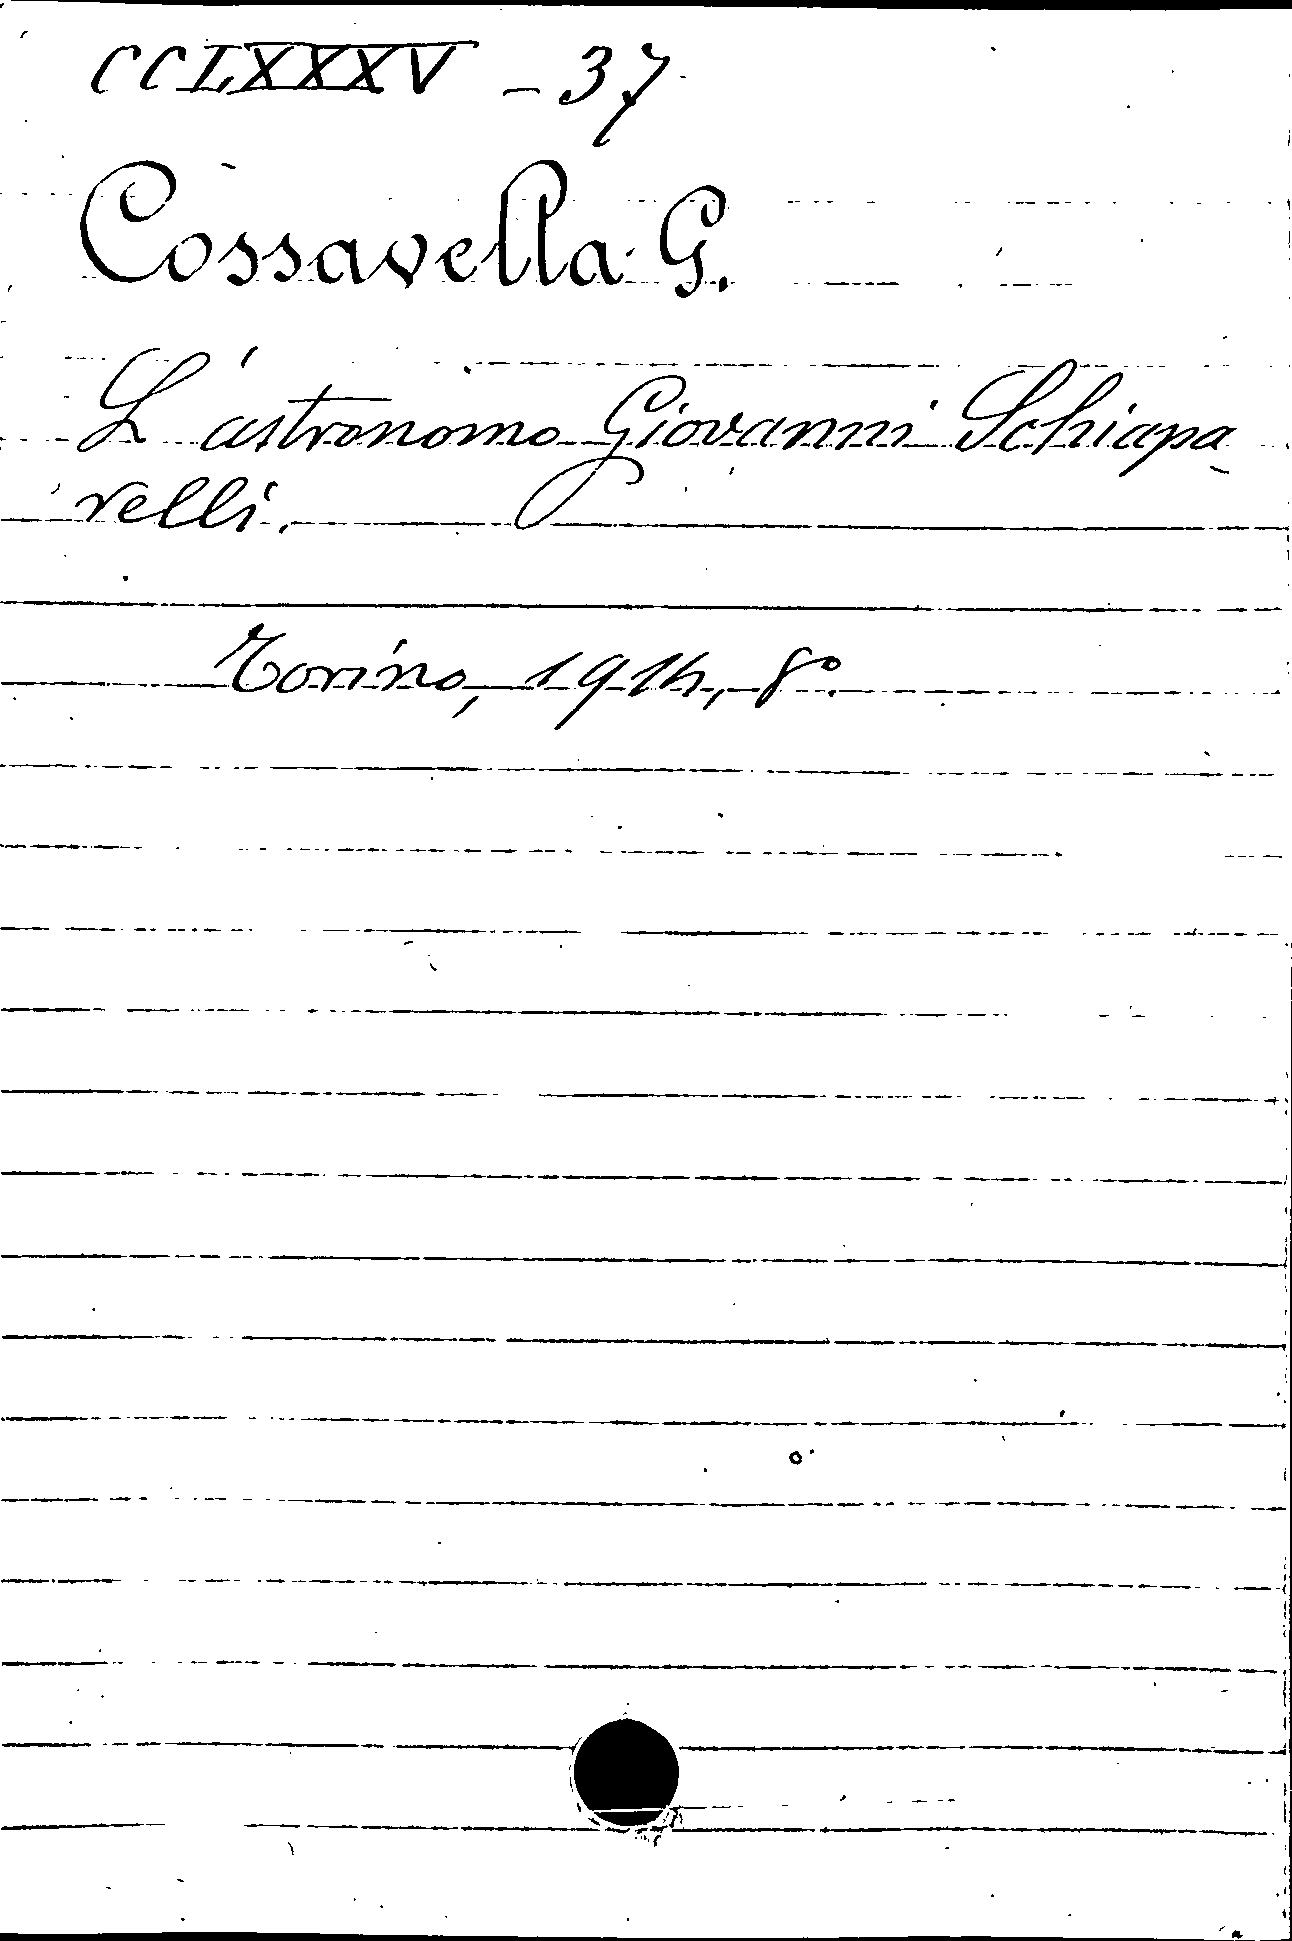 CCLXXXV - 37
Cossavella G.
L'astronomo Giovanni Schiapa
relli.
Torino, 1914, 8°.